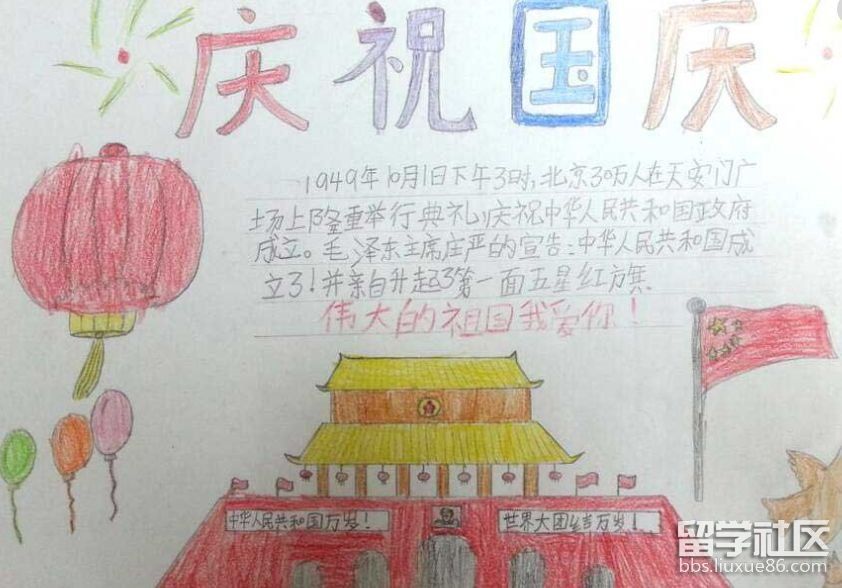 庆祝国庆
1949年10月1日下午3时,北京30万人在天安门广
场上隆重举行典礼,庆祝中华人民共和国政府
成立。毛泽东主席庄严的宣告:中华人民共和国成
立了!并亲自升起了第一面五星红旗.
伟大的祖国我爱你!
中华人民共和国万岁!
世界大团结万岁!
留学社区
bbs.liuxue86.com